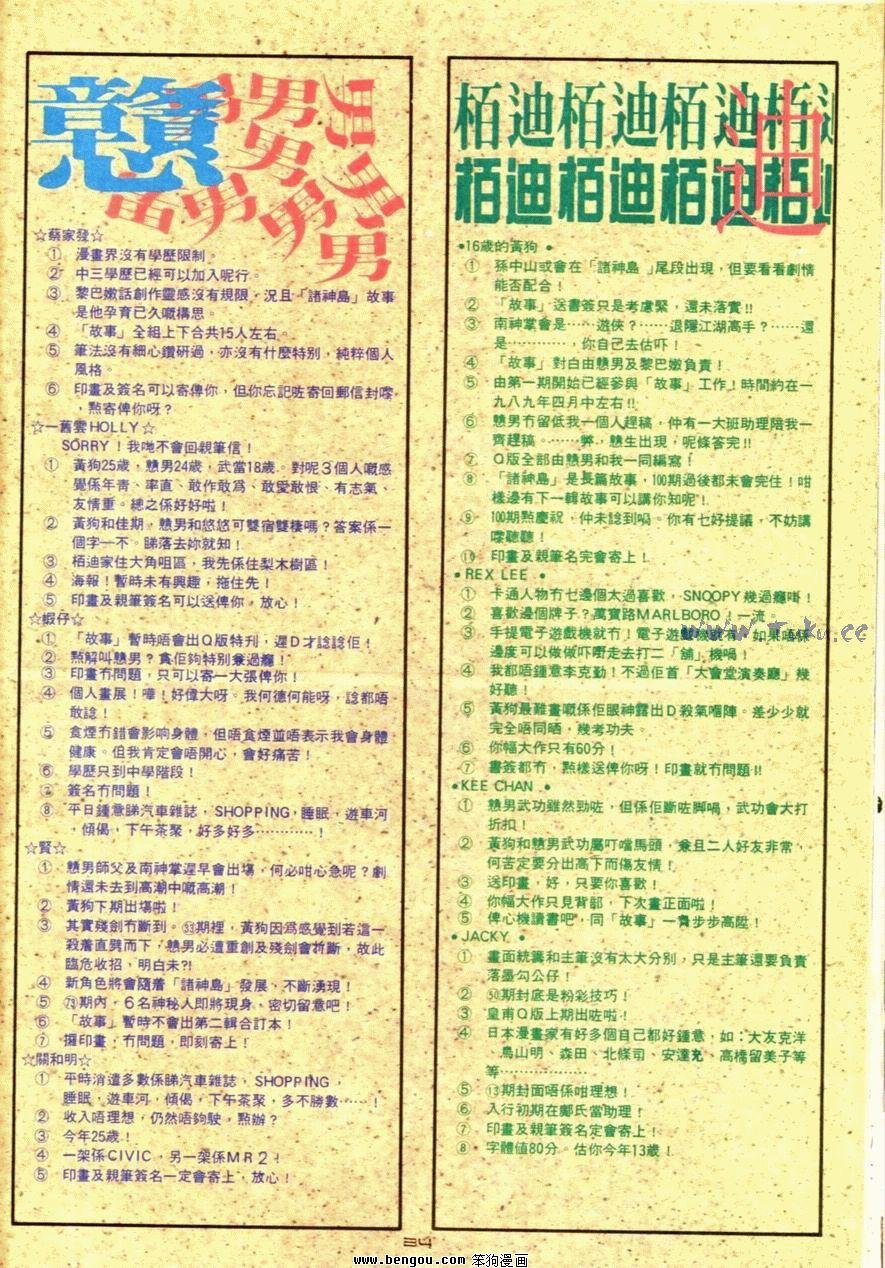 戇男男男男男男男男男
☆蔡家發☆
① 漫畫界沒有學歷限制。
② 中三學歷已經可以加入呢行。
③ 黎巴嫩話創作靈感沒有規限，況且「諸神島」故事
是他孕育已久嘅構思。
④ 「故事」全組上下合共15人左右。
⑤ 筆法沒有細心鑽研過，亦沒有什麼特別，純粹個人
風格。
⑥ 印畫及簽名可以寄俾你，但你忘記咗寄回郵信封嚟
，點寄俾你呀？
☆一舊雲HOLLY☆
SORRY！我哋不會回親筆信！
① 黃狗25歲，戇男24歲，武當18歲。對呢3個人嘅感
覺係年青、率直、敢作敢為、敢愛敢恨、有志氣、
友情重。總之係好好啦！
② 黃狗和佳期，戇男和悠悠可雙宿雙棲嗎？答案係一
個字—不。睇落去妳就知！
③ 栢迪家住大角咀區，我先係住梨木樹區！
④ 海報！暫時未有興趣，拖住先！
⑤ 印畫及親筆簽名可以送俾你，放心！
☆蝦仔☆
① 「故事」暫時唔會出Q版特刊，遲D才諗諗佢！
② 點解叫戇男？貪佢夠特別兼過癮！
③ 印畫冇問題，只可以寄一大張俾你！
④ 個人畫展！嘩！好偉大呀。我何德何能呀，諗都唔
敢諗！
⑤ 食煙冇錯會影响身體，但唔食煙並唔表示我會身體
健康。但我肯定會唔開心，會好痛苦！
⑥ 學歷只到中學階段！
⑦ 簽名冇問題！
⑧ 平日鍾意睇汽車雜誌，SHOPPING，睡眠，遊車河
，傾偈，下午茶聚，好多好多…………！
☆賢☆
① 戇男師父及南神掌遲早會出場，何必咁心急呢？劇
情還未去到高潮中嘅高潮！
② 黃狗下期出場啦！
③ 其實殘劍冇斷到。㉝期裡，黃狗因為感覺到若這一
殺着直劈而下，戇男必遭重創及殘劍會折斷，故此
臨危收招，明白未?!
④ 新角色將會隨着「諸神島」發展，不斷湧現！
⑤ 73期內，6名神秘人即將現身，密切留意吧！
⑥ 「故事」暫時不會出第二輯合訂本！
⑦ 攞印畫，冇問題，即刻寄上！
☆關和明☆
① 平時消遣多數係睇汽車雜誌，SHOPPING，
睡眠，遊車河，傾偈，下午茶聚，多不勝數……！
② 收入唔理想，仍然唔夠駛，點辦？
③ 今年25歲！
④ 一架係CIVIC，另一架係MR2！
⑤ 印畫及親筆簽名一定會寄上，放心！
栢迪栢迪栢迪栢迪栢迪
栢迪栢迪栢迪栢迪
迪
•16歲的黃狗•
① 孫中山或會在「諸神島」尾段出現，但要看看劇情
能否配合！
② 「故事」送書簽只是考慮緊，還未落實!!
③ 南神掌會是……遊俠？……退隱江湖高手？……還
是…………，你自己去估吓！
④ 「故事」對白由戇男及黎巴嫩負責！
⑤ 由第一期開始已經參與「故事」工作！時間約在一
九八九年四月中左右!!
⑥ 戇男冇留低我一個人趕稿，仲有一大班助理陪我一
齊趕稿。……弊，戇生出現，呢條答完!!
⑦ Q版全部由戇男和我一同編寫！
⑧ 「諸神島」是長篇故事，100期過後都未會完住！咁
樣邊有下一輯故事可以講你知呢！
⑨ 100期點慶祝，仲未諗到喎。你有七好提議，不妨講
嚟聽聽！
⑩ 印畫及親筆名完會寄上！
•REX LEE•
① 卡通人物冇七邊個太過喜歡，SNOOPY幾過癮啩！
② 喜歡邊個牌子？萬寶路MARLBORO！一流。
③ 手提電子遊戲機就冇！電子遊戲機就有，如果唔係
邊度可以做做吓嘢走去打二「舖」機喎！
④ 我都唔鍾意李克勤！不過佢首「大會堂演奏廳」幾
好聽！
⑤ 黃狗最難畫嘅係佢眼神露出D殺氣嗰陣。差少少就
完全唔同晒，幾考功夫。
⑥ 你幅大作只有60分！
⑦ 書簽都冇，點樣送俾你呀！印畫就冇問題!!
•KEE CHAN•
① 戇男武功雖然勁咗，但係佢斷咗脚喎，武功會大打
折扣！
② 黃狗和戇男武功屬叮噹馬頭，兼且二人好友非常，
何苦定要分出高下而傷友情！
③ 送印畫，好，只要你喜歡！
④ 你幅大作只見背部，下次畫正面啦！
⑤ 俾心機讀書吧，同「故事」一齊步步高陞！
•JACKY•
① 畫面統籌和主筆沒有太大分別，只是主筆還要負責
落墨勾公仔！
② ㊿期封底是粉彩技巧！
③ 皇甫Q版上期出咗啦！
④ 日本漫畫家有好多個自己都好鍾意，如：大友克洋
、鳥山明、森田、北條司、安達充、高橋留美子等
等………………
⑤ ⑬期封面唔係咁理想！
⑥ 入行初期在鄺氏當助理！
⑦ 印畫及親筆簽名定會寄上！
⑧ 字體值80分。估你今年13歲！
34
www.bengou.com 笨狗漫画